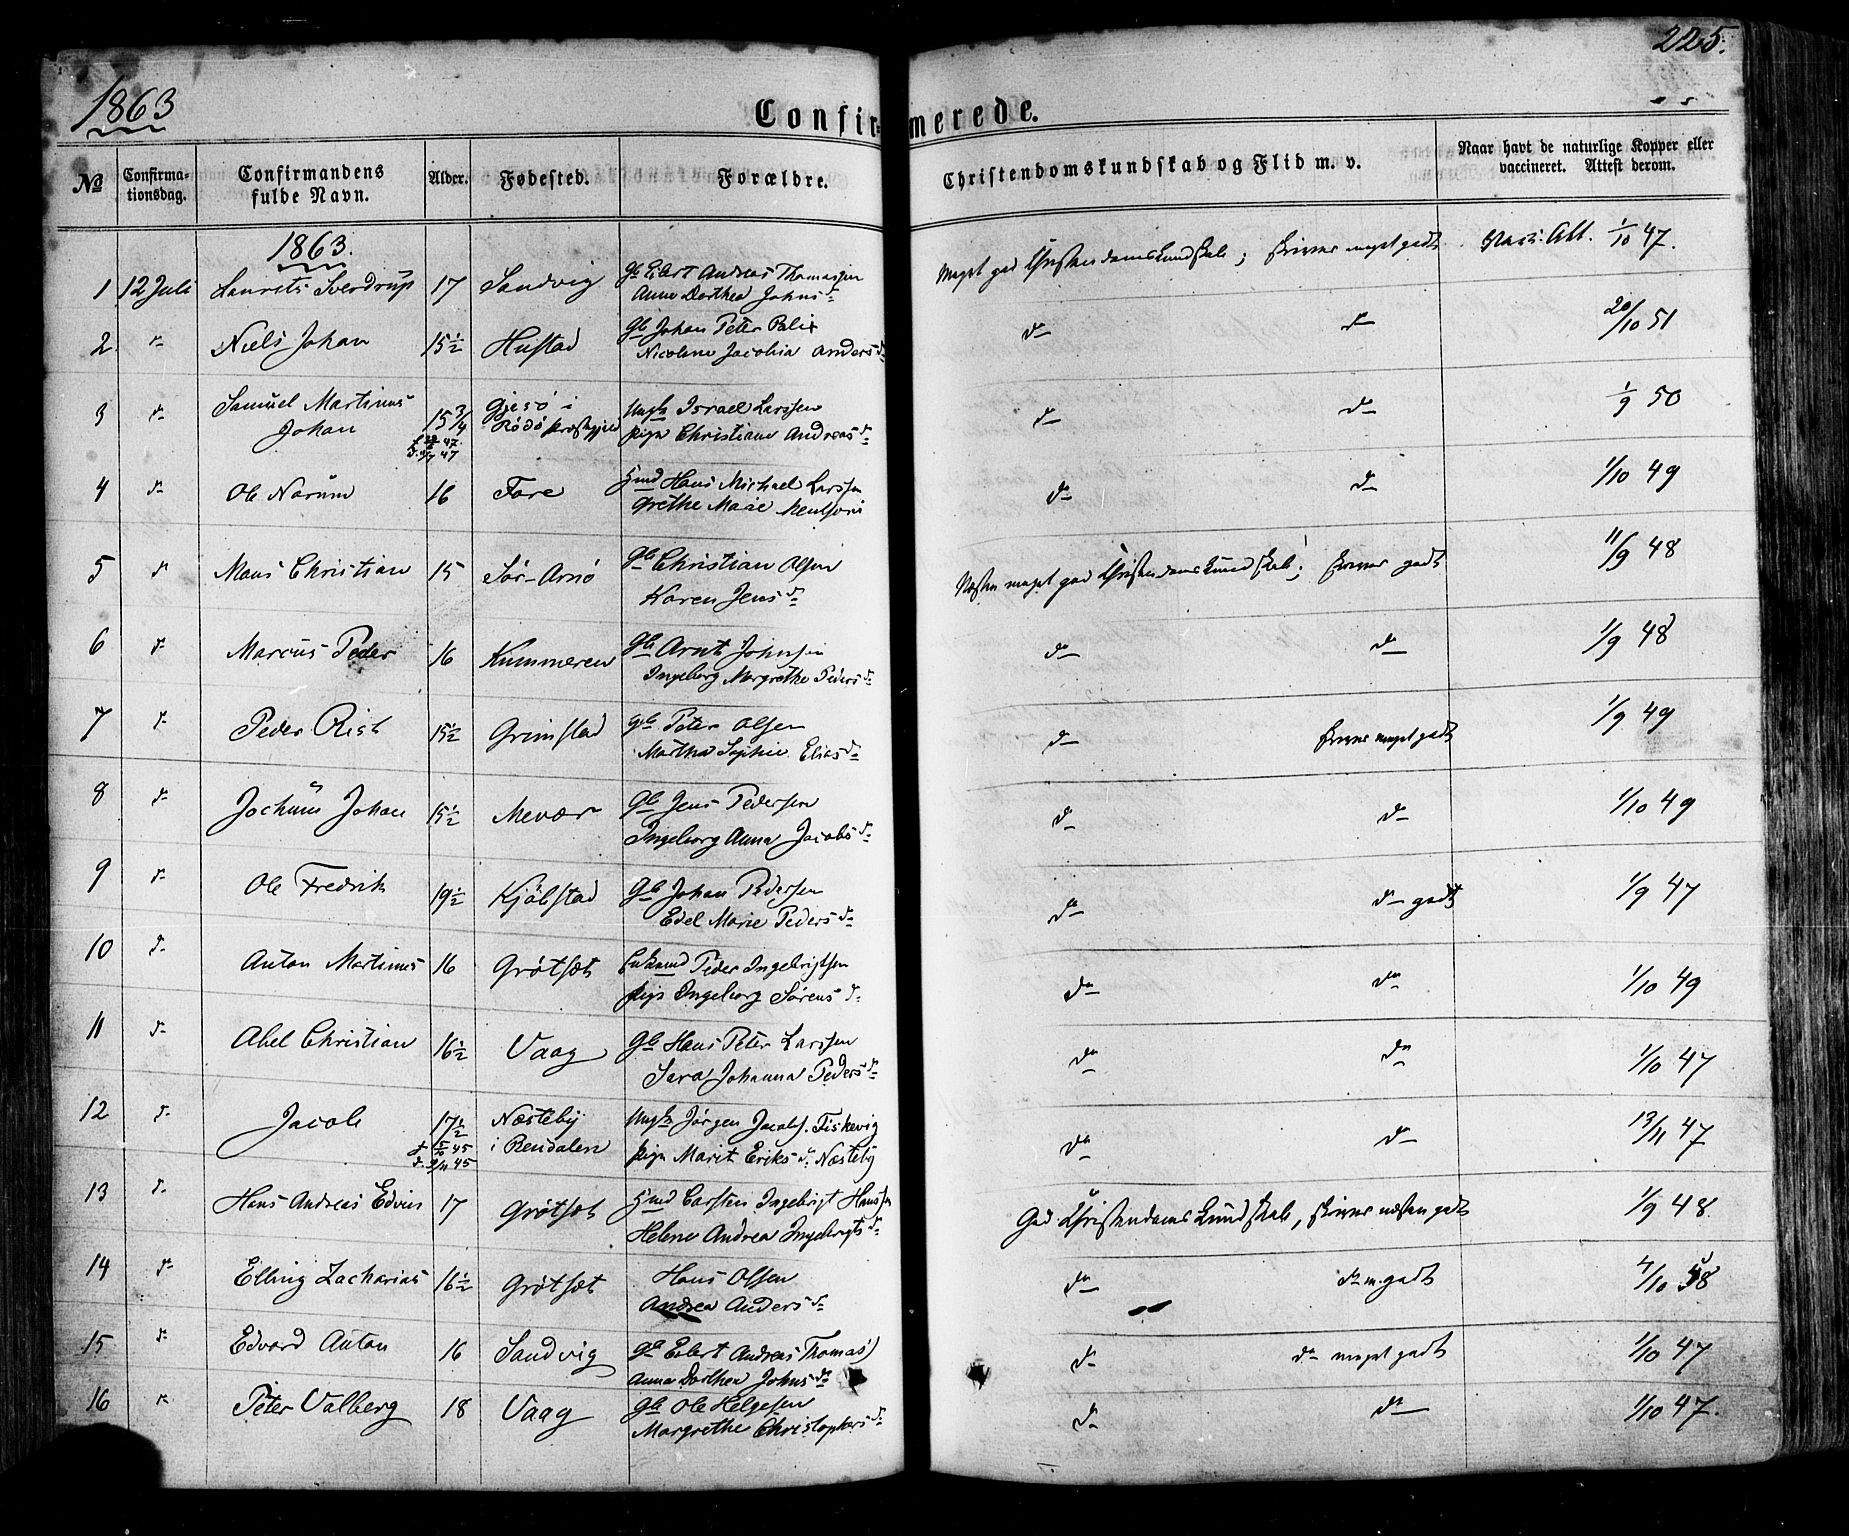 225.
1863
Confirmerede.
No
Confirmationsdag.
Confirmandens fulde Navn.
Alder.
Fødested.
Forældre.
Christendomskundskab og Flid m. v.
Naar havt de naturlige Kopper eller vaccineret. Attest derom.
1863.
1 12 Juli Laurits Sverdrup 17 Sandvig Gb Eilert Andreas Thomassen
Anne Dorthea Johnsd
Meget god Christendomskundskab; skriver meget godt Vacc. Att. 1/10 47.
2. d Niels Johan 15 1/2 Hustad Gb Johan Peter
Nicoline Jacobia Andersd
d d 20/10 51
3 d Samuel Martinus
Johan
15 3/4 Gjesø i
Rødø Præstegjeld
Ungk Israel Larssen
pige Christiane Andreasd
d d 1/9 50
4 d Ole Norum 16 Fore Hmd Hans Michael Larssen
Grethe Marie
d d 1/10 49
5 d Mons Christian 15 Sør-Arnø Gb Christian Olsen
Karen Jensd
Næsten meget god Christendomskundskab; skriver godt 11/9 48
6 d Marcus Peder 16 Kummeren Gb Arnt Johnsen
Ingeborg Margrethe Pedersd
d d 1/9 48
7 d Peder Rist 15 1/2 Grimstad Gb Peter Olsen
Martha Sophie Eliasd
d skriver meget godt 1/9 49
8 d Jochum Johan 15 1/2 Mevær Gb Jens Pedersen
Ingeborg Anna Jacobsd
d d 1/10 49
9 d Ole Fredrik 19 1/2 Kjøbstad Gb Johan Pedersen
Edel Marie Pedersd
d d godt 1/9 47
10 d Anton Martinus 16 Grøtset Enkemd Peder Ingebrigtsen
pige Ingeborg Sørensd
d d 1/10 49
11 d Abel Christian 16 1/2 Vaag Gb Hans Peter Larssen
Sara Johanna Pedersd
d d 1/10 47
12 d Jacob 17 1/2 Næsteby
i Rendalen
Ungk Jørgen Jacobs. Fiskevig
pige Marit Eriksd Næsteby
d d 13/11 47
13 d Hans Andreas Edvin 17 Grøtset Hmd Carsten Ingebrigt Hanssen
Helene Andrea Ingebrigtsd
God Christendomskundskab, skriver næsten godt 1/9 48.
14 d Elling Zacharias 16 1/2 Grøtset Hans Olsen
Andrea Andersd
d d m. godt
15 d Edvard Anton 16 Sandvig Gb Eilert Andreas Thomas)
Anna Dorthea Johnsd
d d meget godt 1/10 47
16 d Peter Valberg 18 Vaag Gb Ole Helgesen
Margrethe Christophersd
d d 1/10 47.